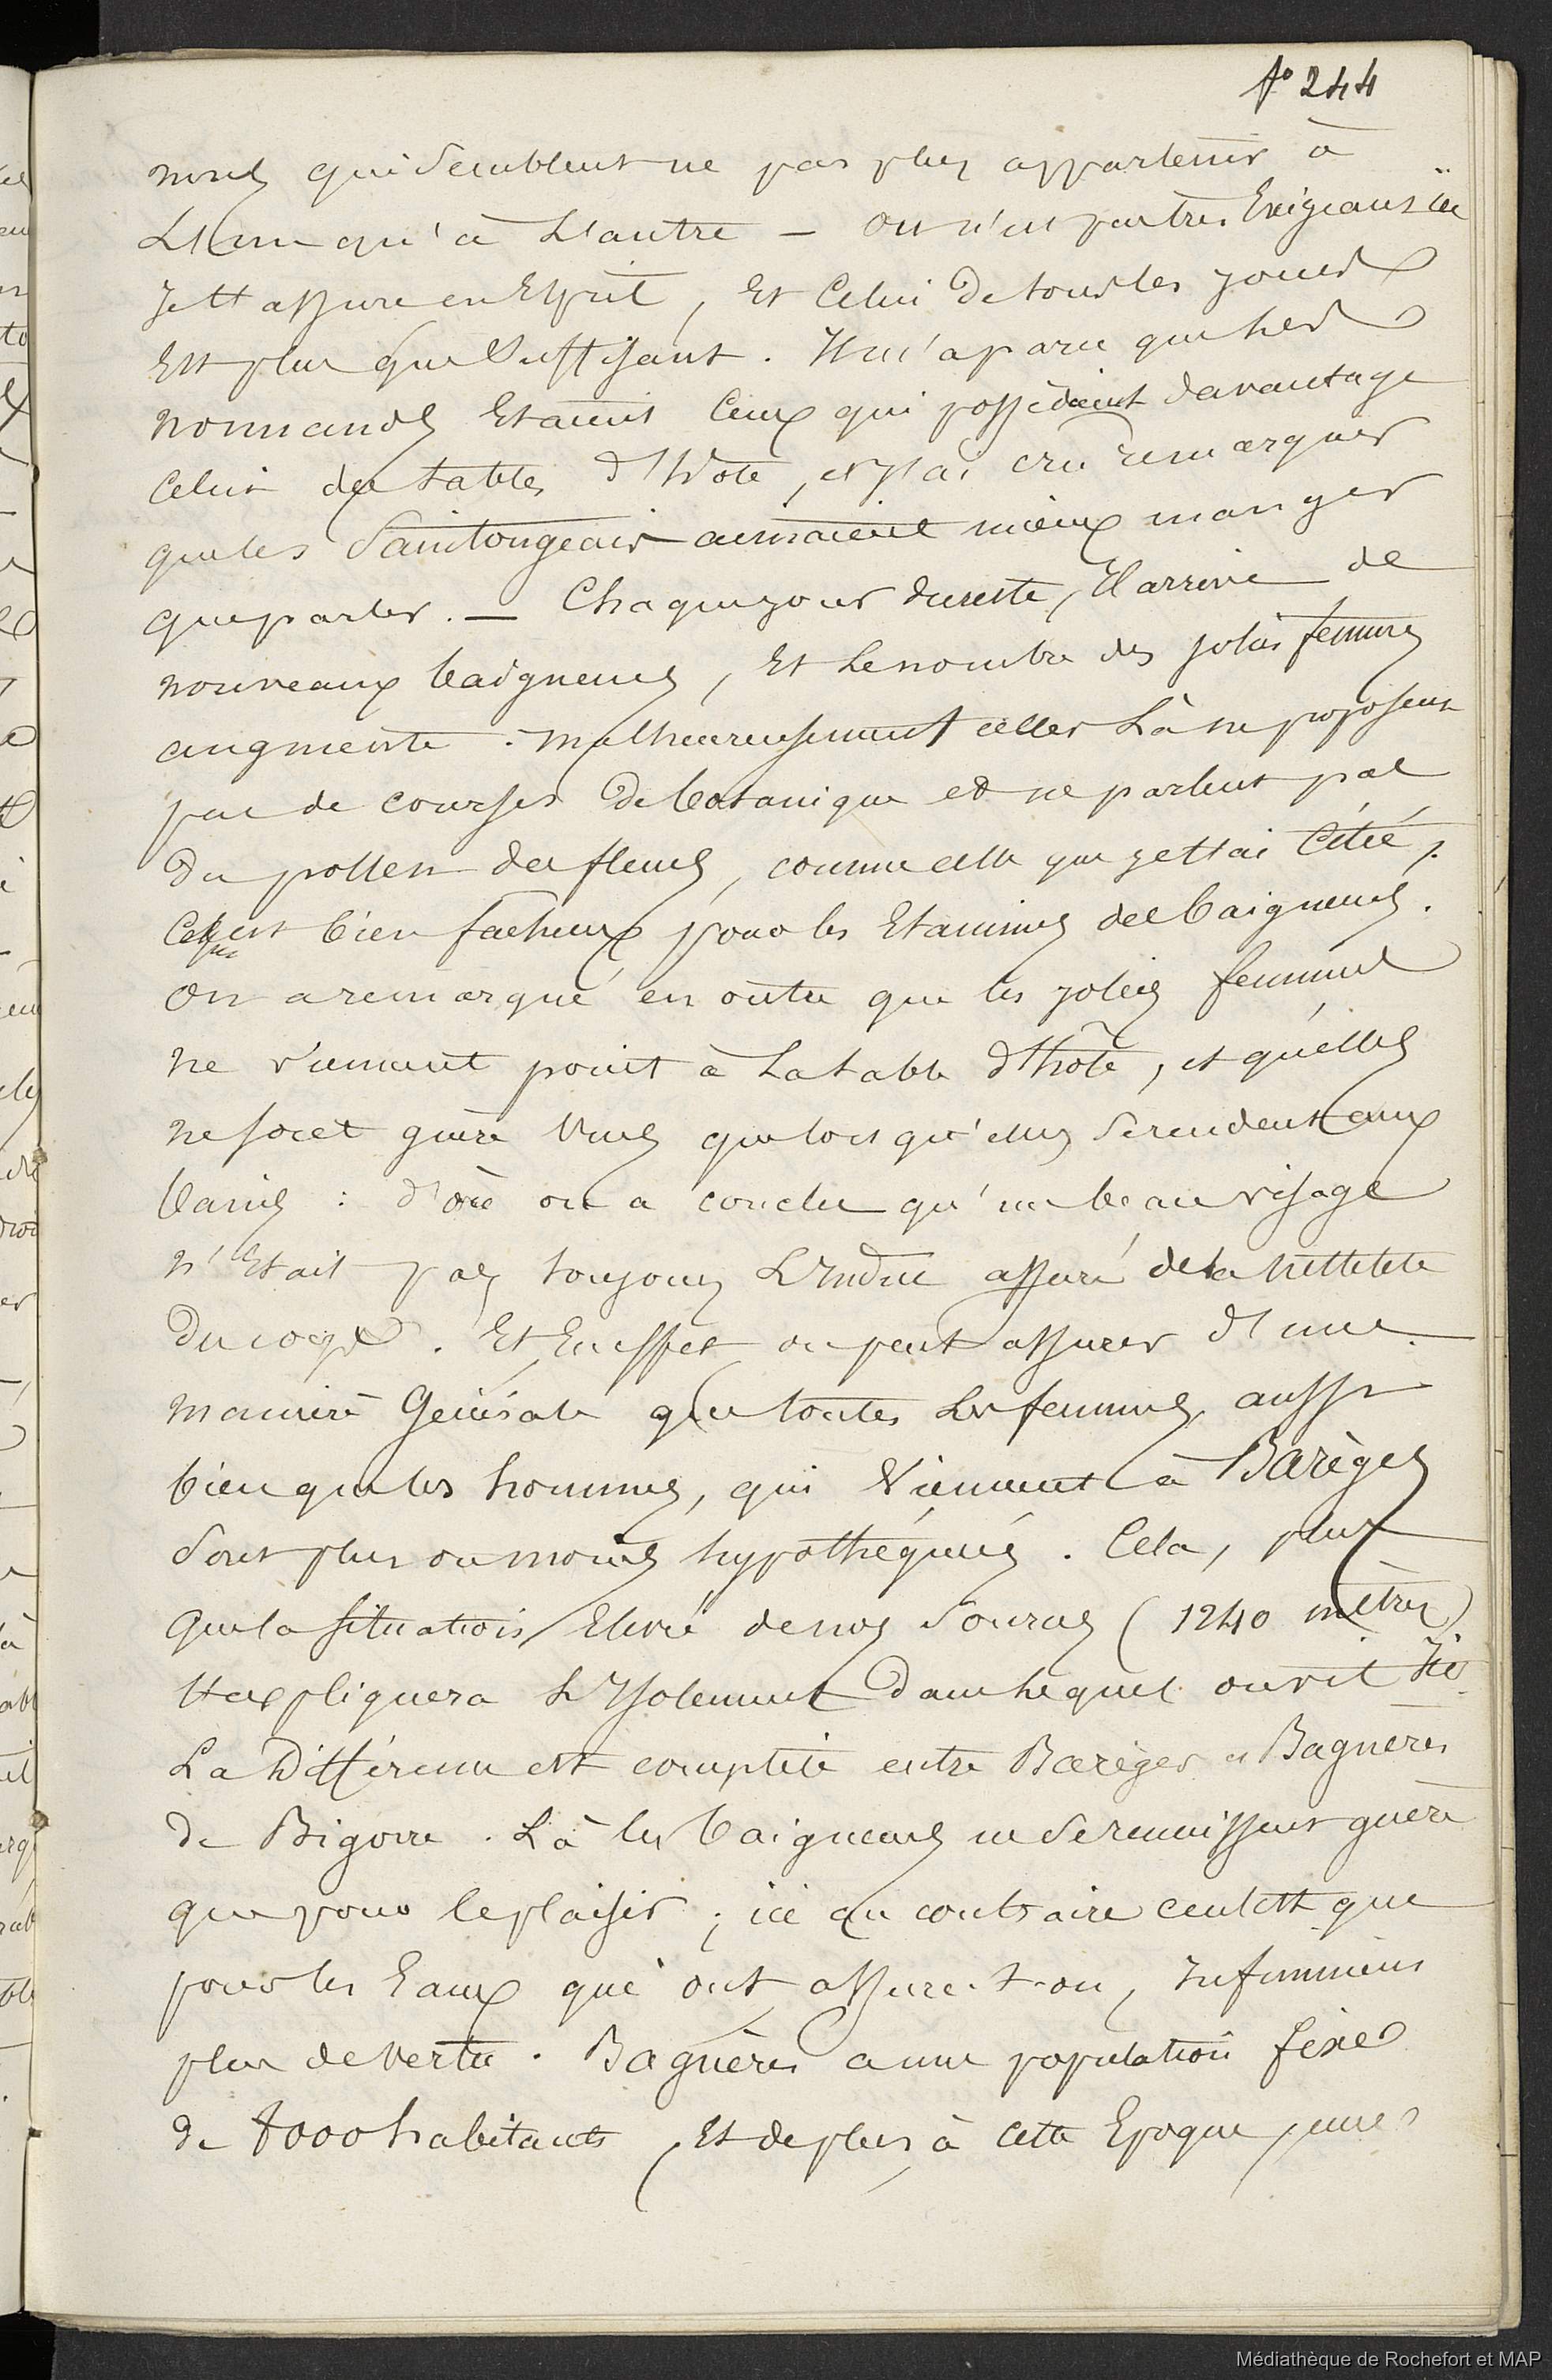 fo 244
qui semblent ne pas plus appartenir à
L'un qu'à L'autre — on n'est pas tres Exigeans ici
je t'assure en Esprit, Et Celui de tous les jours
Est plus que suffisant. Il m'a paru que les
normands Etaient Ceux qui possédaient davantage
Celui des tables d'hôte, et j'ai cru remarquer
que les Saintongeais aimaient mieux manger
que parler. — Chaque jour du reste, Il arrive de
nouveaux baigneurs, Et le nombre des jolies femmes
augmente. malheureusement celles là ne proposent
pas de courses de botanique et ne parlent pas
du pollen des fleurs, comme celle que je t'ai Citée,
est bien facheux pour les Etamines des baigneurs.
On a remarqué en outre que les jolies femmes
ne viennent point à La table d'hôte, et qu'elles
ne sont guère Vues que lorsqu'elles se rendent aux
bains : d'où on a conclu qu'un beau visage
n'Etait pas toujours L'Indice assuré de la netteté
du corps. Et En effet on peut assurer d'une
maniere Générale que toutes Les femmes, aussi
bien que les hommes, qui Viennent à Barèges
sont plus ou moins hypothéqués. Cela, plus
que la situation Elevée de nos sources (1240 mètres)
t'expliquera L'Isolement dans lequel on vit Ici.
La Différence est complète entre Barèges et Bagnères
de Bigorre. Là les baigneurs ne se reunissent guère
que pour le plaisir ; ici au contraire ce n'est que
pour les Eaux qui ont, assure-t-on, Infiniment
plus de vertu. Bagnères a une population fixe
de 8000 habitants, Et de plus à cette Epoque, une